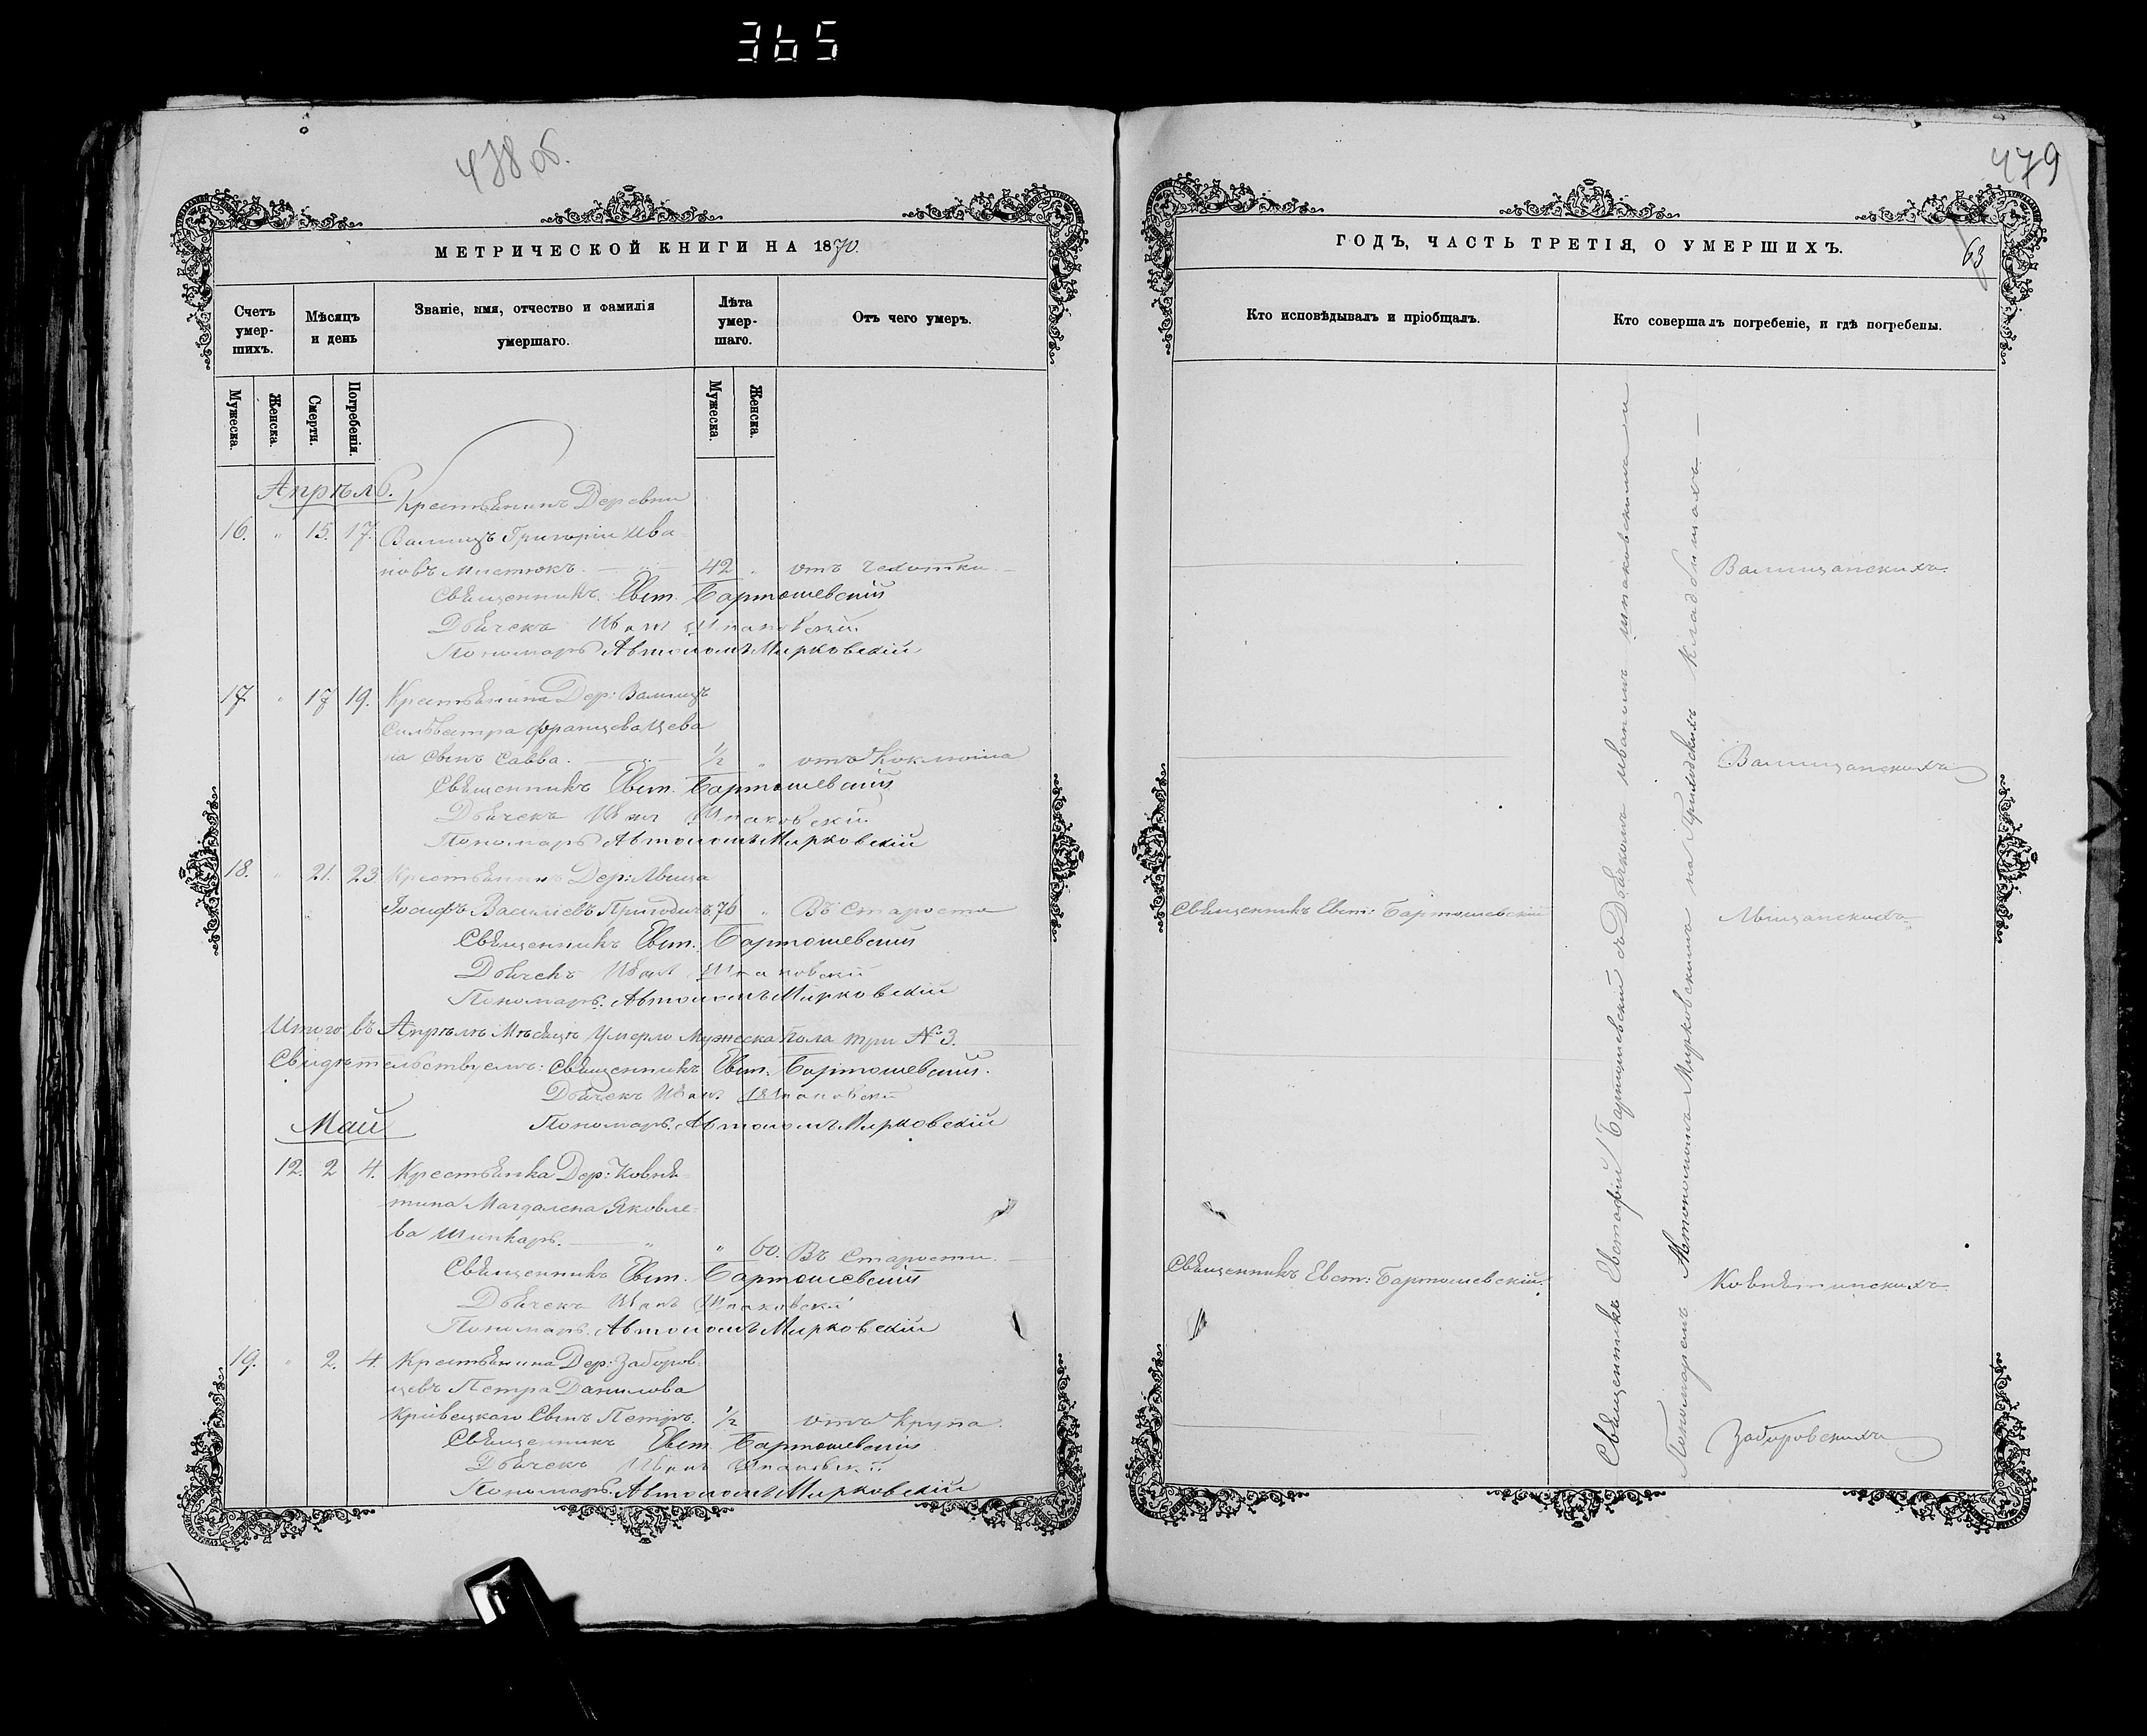 365
478 об.
МЕТРИЧЕСКОЙ КНИГИ НА 1870.
Счетъ умер-шихъ.
Мѣсяцъ и день
Званіе, имя, отчество и фамилія умершаго.
Лѣта умер-шаго.
Отъ чего умеръ.
Мужеска.
Женска.
Смерти.
Погребенія.
Мужеска.
Женска.
Апрѣль.
Крестьянинъ Деревни
16. " 15. 17. Валищъ Григорій Ива
новъ Мистюкъ. 42 " отъ Чахотки.
Священникъ Евст. Бартошевскій
Дьячекъ Иванъ Шпаковскій
Пономарь Автономъ Мирковскій
17 " 17 19. Крестьянина Дер: Валищъ
Сильвестра Францева Цева
ка сынъ Савва. 1/2 " отъ Коклюша
Священникъ Евст. Бартошевскій
Дьячекъ Иванъ Шпаковскій
Пономарь Автономъ Мирковскій
18. " 21. 23. Крестьянинъ Дер:
Іосифъ Василіевъ Пригодичъ. 70 " Въ Старости
Священникъ Евст. Бартошевскій
Дьячекъ Иванъ Шпаковскій
Пономарь. Автономъ Мирковскій
Итого въ Апрѣлѣ Мѣсяцѣ Умерло Мужеска Пола три № 3.
Свидѣтельствуемъ: Священникъ Евст. Бартошевскій.
Дьячекъ Иванъ Шпаковскій
Пономарь. Автономъ Мирковскій
Май
12. 2 4. Крестьянка Дер: Ковня
тина Магдалена Яковле
ва Шинкарь. " " 60. Въ Старости.
Священникъ Евст. Бартошевскій
Дьячекъ Иванъ Шпаковскій
Пономарь. Автономъ Мирковскій
19. " 2. 4. Крестьянина Дер: Заборов
цевъ Петра Данилова
Кривецкаго Сынъ Петръ. 1/2 отъ Крупа.
Священникъ Евст. Бартошевскій
Дьячекъ Иванъ Шпаковскій
Пономарь. Автономъ Мирковскій
479
ГОДЪ, ЧАСТЬ ТРЕТІЯ, О УМЕРШИХЪ.
63
Кто исповѣдывалъ и пріобщалъ.
Кто совершалъ погребеніе, и гдѣ погребены.
Валищанскихъ.
Валищанскихъ
Священникъ Евст: Бартошевскій
Священникъ Евст: Бартошевскій.
Ковнятинскихъ
Заборовскихъ
Священникъ Евстафій Бартошевскій съ Дьячкомъ Иваномъ Шпаковскимъ и
Пономаремъ Автономомъ Мирковскимъ на Приходскихъ Кладбищахъ